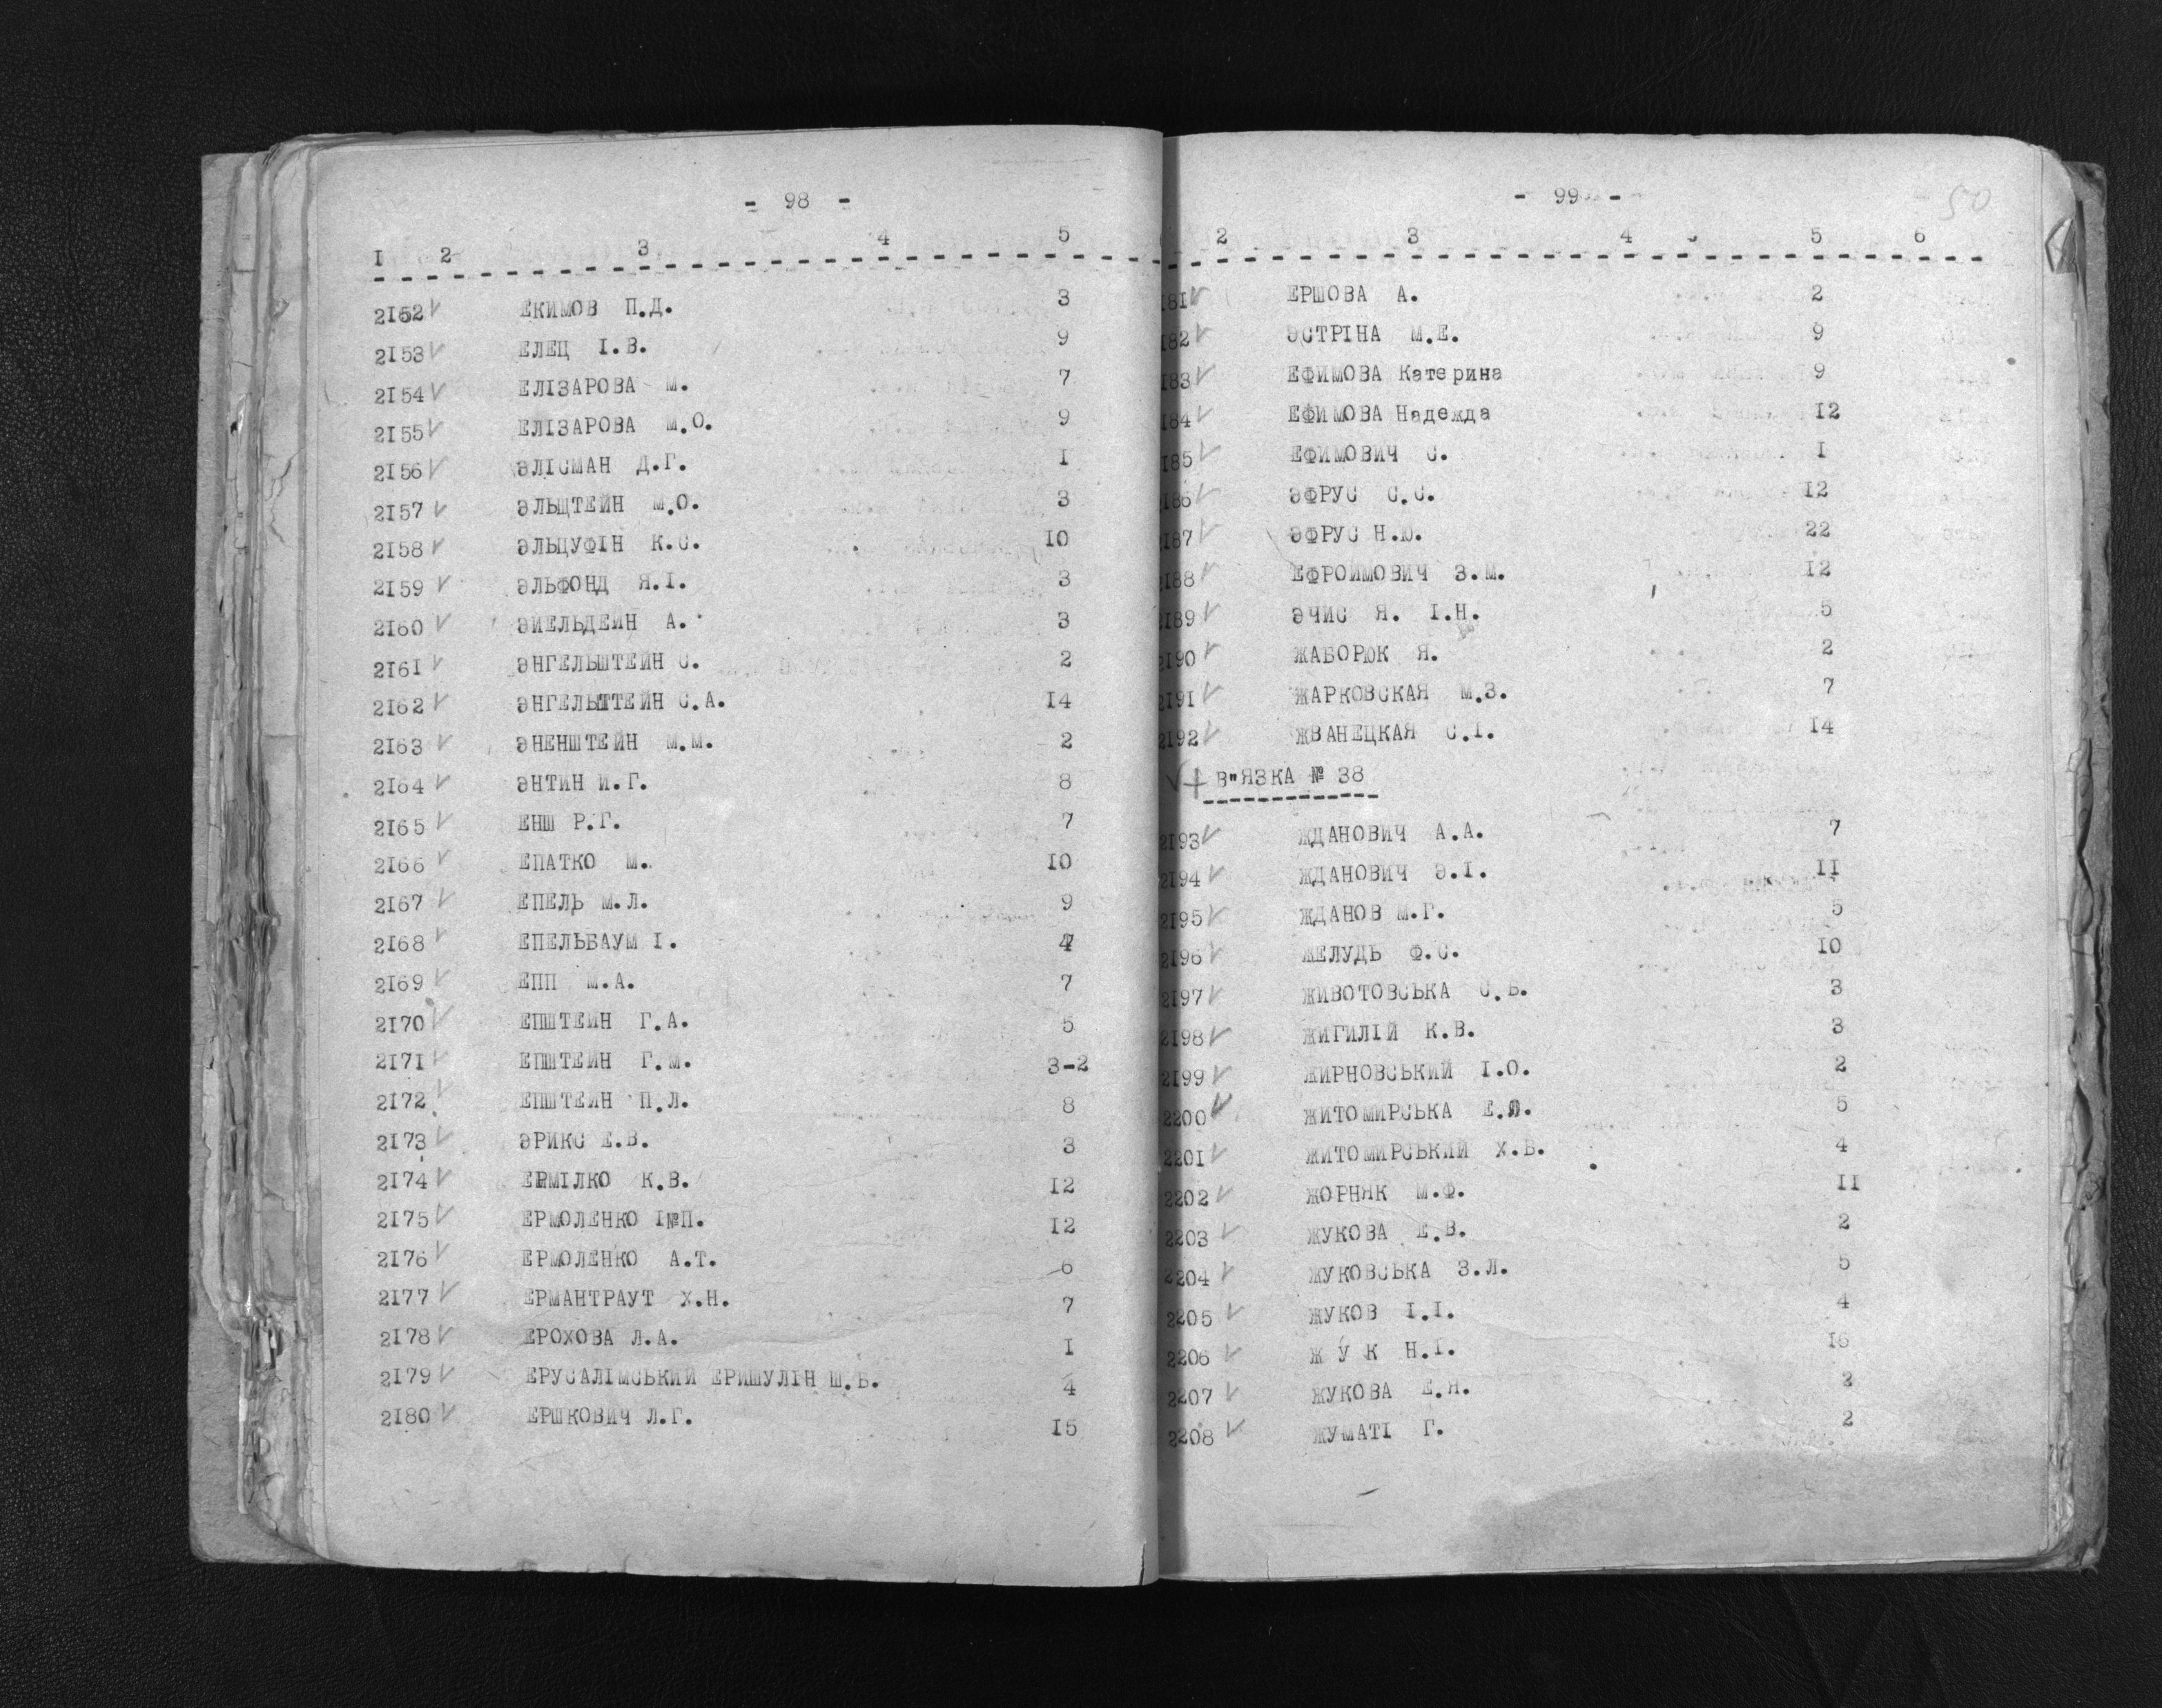 - 98 -
1 2 3 4 5
2152 ЕКИМОВ П.Д. 3
2153 ЕЛЕЦ І.В. 9
2154 ЕЛІЗАРОВА М. 7
2155 ЕЛІЗАРОВА М.О. 9
2156 ЭЛІСМАН Д.Г. I
2157 ЭЛЬШТЕЙН М.О. 3
2158 ЭЛЬЦУФІН К.С. 10
2159 ЭЛЬФОНД Я.І. 3
2160 ЭИЕЛЬДЕИН А. 3
2161 ЭНГЕЛЬШТЕЙН С. 2
2162 ЭНГЕЛЬШТЕЙН С.А. 14
2163 ЭНЕНШТЕЙН М.М. 2
2164 ЭНТИН И.Г. 8
2165 ЕНШ Р.Г. 7
2166 ЕПАТКО М. 10
2167 ЕПЕЛЬ М.Л. 9
2168 ЕПЕЛЬБАУМ І.
2169 ЕПП М.А. 7
2170 ЕПШТЕИН Г.А. 5
2171 ЕПШТЕИН Г.М. 3-2
2172 ЕПШТЕИН П.Л. 8
2173 ЭРИКС Е.В. 3
2174 ЕРМІЛКО К.В. 12
2175 ЕРМОЛЕНКО І№П. 12
2176 ЕРМОЛЕНКО А.Т. 6
2177 ЕРМАНТРАУТ Х.Н. 7
2178 ЕРОХОВА Л.А. I
2179 ЕРУСАЛІМСЬКИЙ ЕРИШУЛІН Ш.Б. 4
2180 ЕРШКОВИЧ Л.Г. 15
- 99 -
50
2 3 4 5 6
181 ЕРШОВА А. 2
182 ЭСТРІНА М.Е. 9
183 ЕФИМОВА Катерина 9
184 ЕФИМОВА Надежда 12
185 ЕФИМОВИЧ С. I
186 ЭФРУС С.С. 12
2187 ЭФРУС Н.Ю. 22
2188 ЕФРОИМОВИЧ З.М. 12
2189 ЭЧИС Я. І.Н. 5
2190 ЖАБОРЮК Я. 2
2191 ЖАРКОВСКАЯ М.З. 7
2192 ЖВАНЕЦКАЯ С.І. 14
В"ЯЗКА № 38
2193 ЖДАНОВИЧ А.А. 7
2194 ЖДАНОВИЧ Э.І. 11
2195 ЖДАНОВ М.Г. 5
2196 ЖЕЛУДЬ Ф.С. 10
2197 ЖИВОТОВСЬКА С.Б. 3
2198 ЖИГИЛІЙ К.В. 3
2199 ЖИРНОВСЬКИЙ І.О. 2
2200 ЖИТОМИРСЬКА Е.Л. 5
2201 ЖИТОМИРСЬКИЙ Х.Б. 4
2202 ЖОРНЯК М.Ф. 11
2203 ЖУКОВА Е.В. 2
2204 ЖУКОВСЬКА З.Л. 5
2205 ЖУКОВ І.І. 4
2206 Ж У К Н.І. 16
2207 ЖУКОВА Е.Я. 2
2208 ЖУМАТІ Г. 2